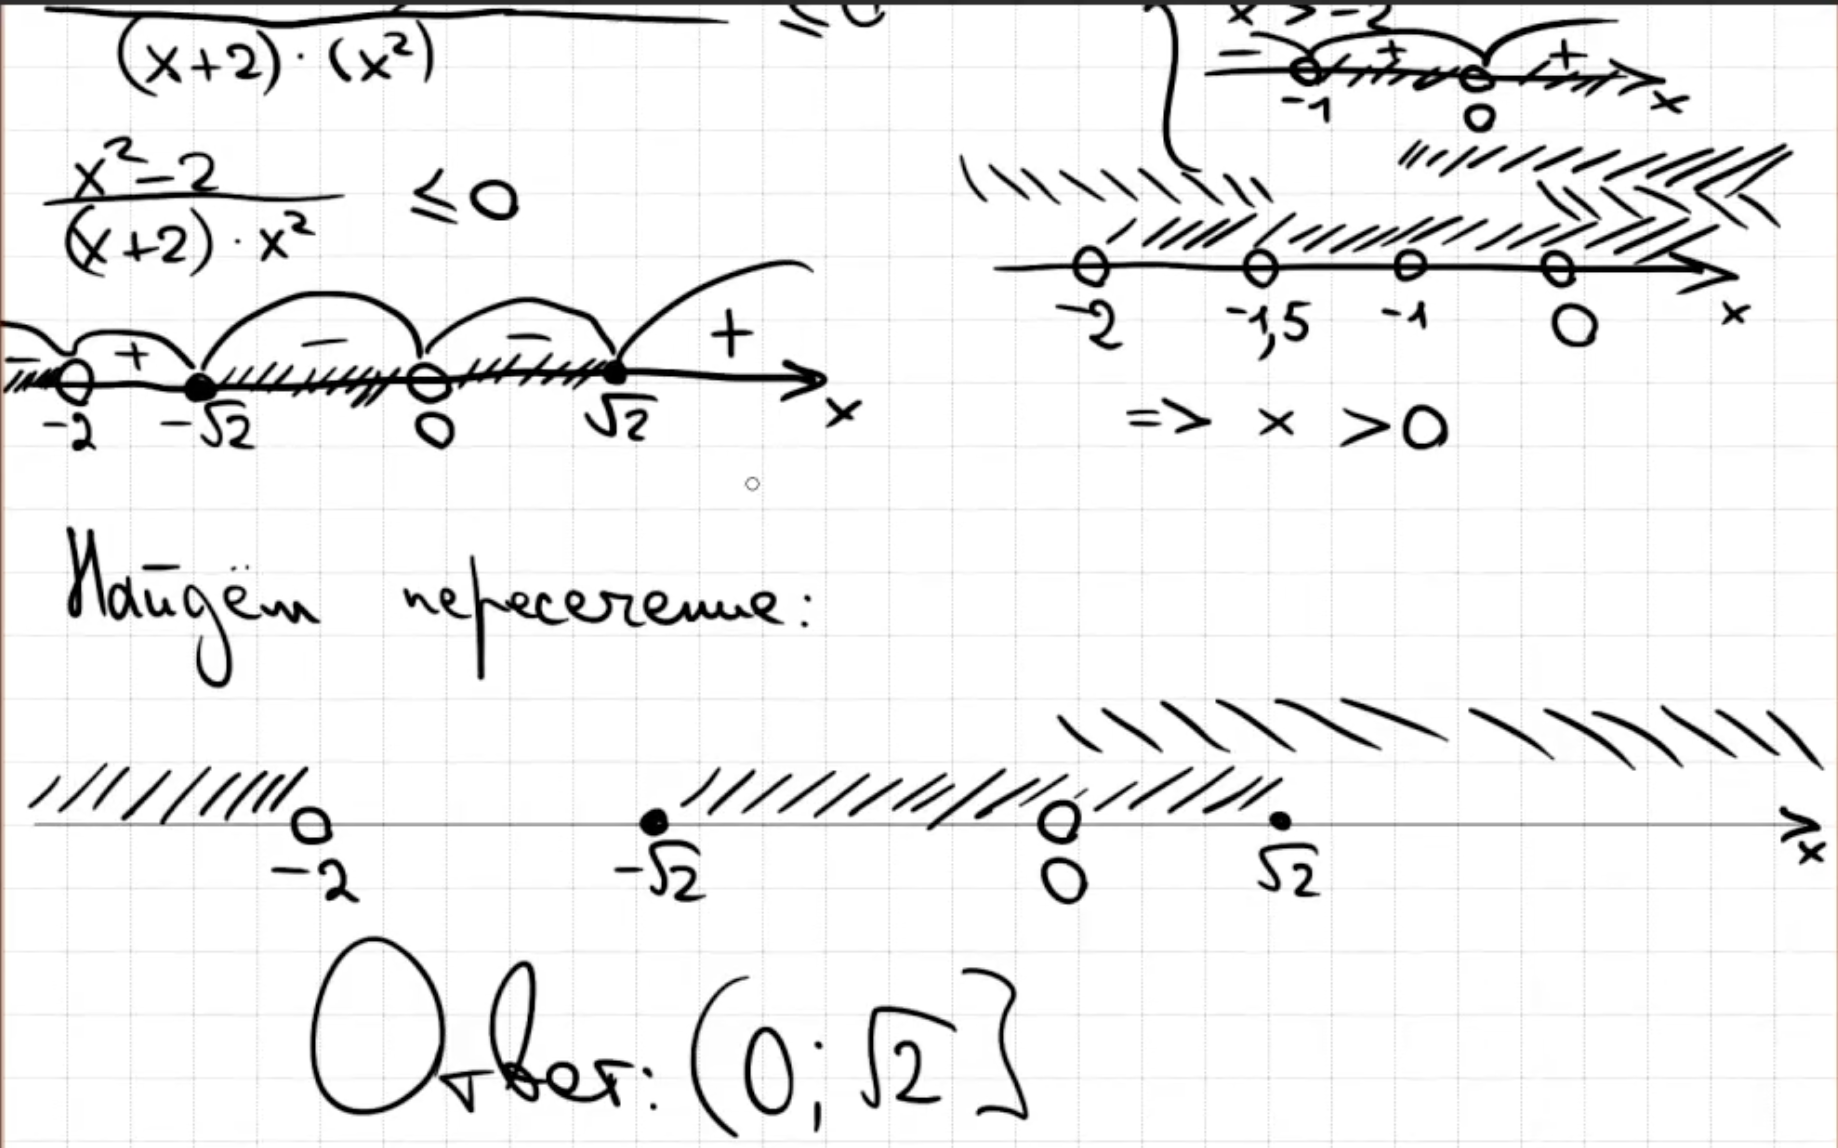 ≤ 0
(x+2)·(x²)
x²-2
(x+2)·x²
≤ 0
- + - - +
-2 -√2 0 √2 x
x > -2
- + +
-1 0 x
-2 -1,5 -1 0 x
=> x >0
Найдём пересечение:
-2 -√2 0 √2 x
Ответ: (0; √2]